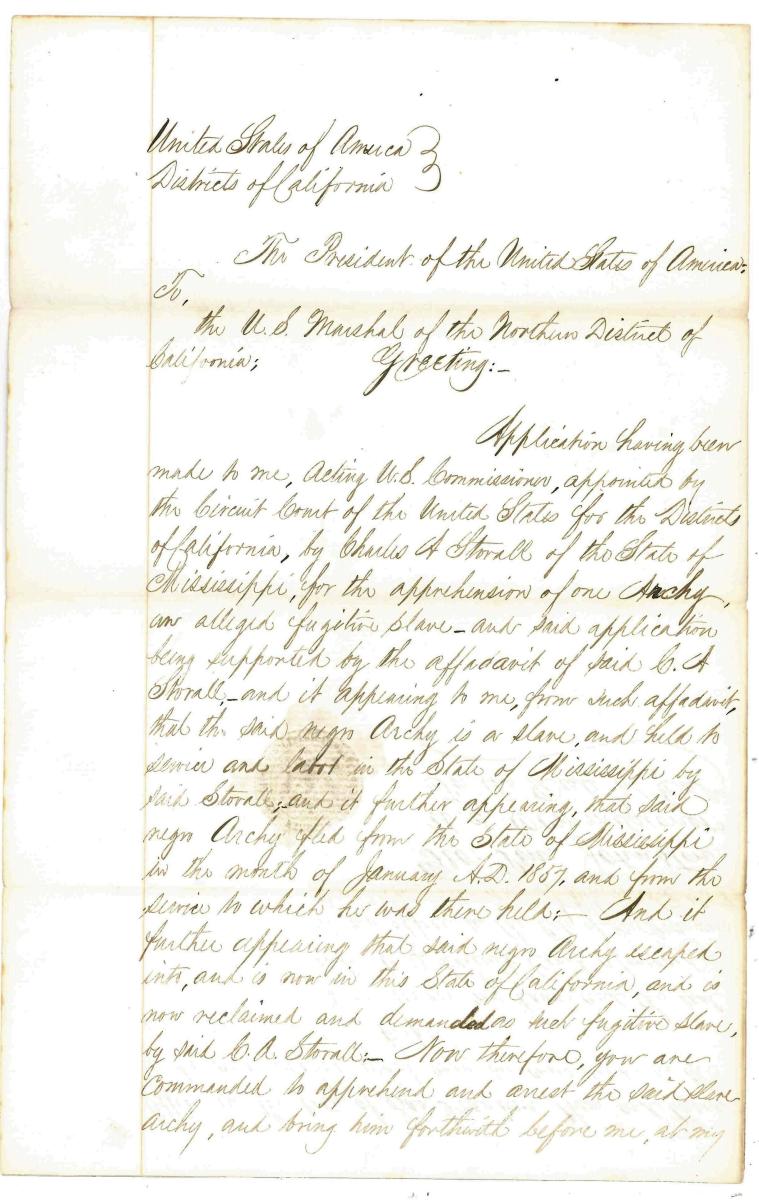 United States of America }
Districts of California }
The President of the United States of America:
To,
the U.S. Marshal of the Northern District of
California; Greeting:–
Application having been
made to me, Acting U.S. Commissioner, appointed by
the Circuit Court of the United States for the Districts
of California, by Charles A Stovall of the State of
Mississippi, for the apprehension of one Archy,
an alleged fugitive slave – and said application
being supported by the affadavit of said C. A
Stovall, – and it appearing to me, from such affadavit,
that the said negro Archy is a slave, and held to
service and labor in the State of Mississippi by
said Stovall; – and it further appearing, that said
negro Archy fled from the State of Mississippi
in the month of January A.D. 1857, and from the
service to which he was there held: – And it
further appearing that said negro Archy escaped
into, and is now in this State of California, and is
now reclaimed and demanded as such fugitive slave,
by said C. A. Stovall: – Now therefore, you are
commanded to apprehend and arrest the said slave
Archy, and bring him forthwith before me, at my